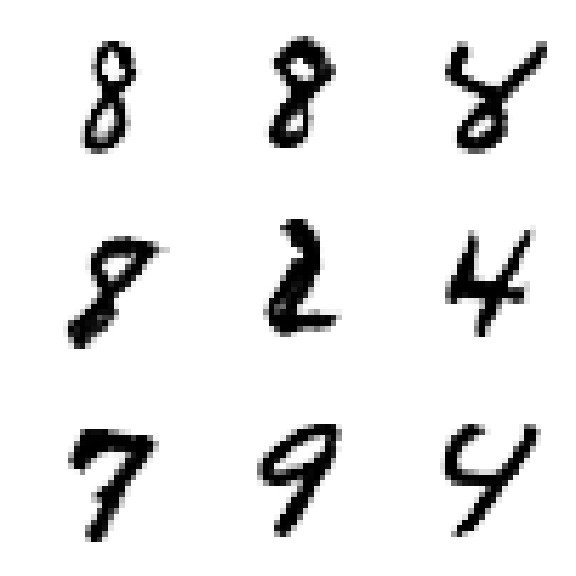 8 8 8
8 2 4
7 9 4